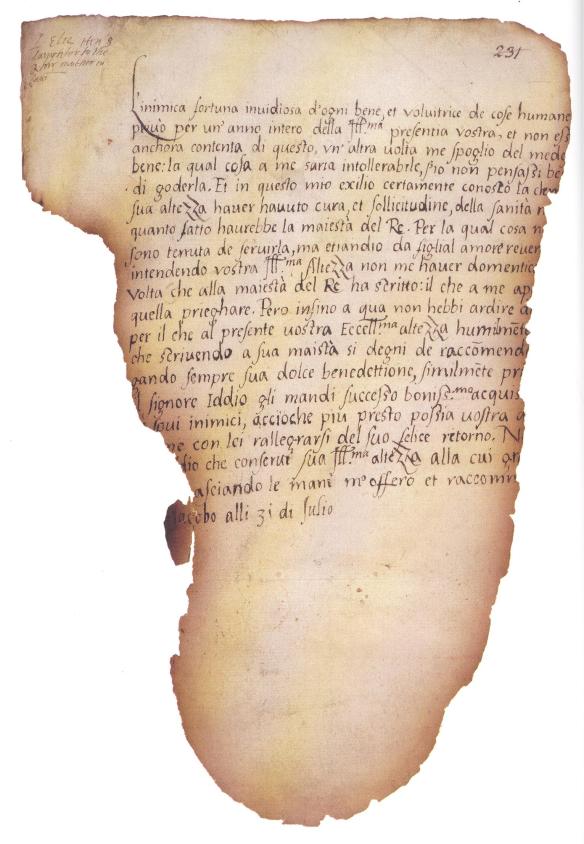 231
L'inimica fortuna invidiosa d'ogni bene, et voluitrice de cose humane
privò per un'anno intero della Ill.ma presentia vostra, et non es
anchora contenta di questo, vn'altra uolta me spoglio del mede
bene: la qual cosa a me saria intollerabile, s'io non pensassi
di goderla. Et in questo mio exilio certamente conosco la clem
sua altezza hauer hauuto cura, et sollicitudine, della sanità
quanto fatto haurebbe la maiestà del Re. Per la qual cosa n
sono tenuta de seruirla, ma etiandio da figlial amore reuer
intendendo vostra Ill.ma Altezza non me hauer domentic
volta che alla maiestà del Re ha scritto: il che a me ap
quella prieghare. Pero insino a qua non hebbi ardire
per il che al presente uostra Eccell.ma altezza humilmēte
che scriuendo a sua maistà si degni de raccōmend
gando sempre sua dolce benedettione, similmēte pr
l signore Iddio gli mandi successo boniss.mo acquis
suoi inimici, accioche piu presto possia uostra
con lei rallegrarsi del suo felice retorno. N
dio che conserui sua Ill.ma altezza alla cui gr
asciando le mani m'offero et raccom
Iacobo alli 31 di Iulio